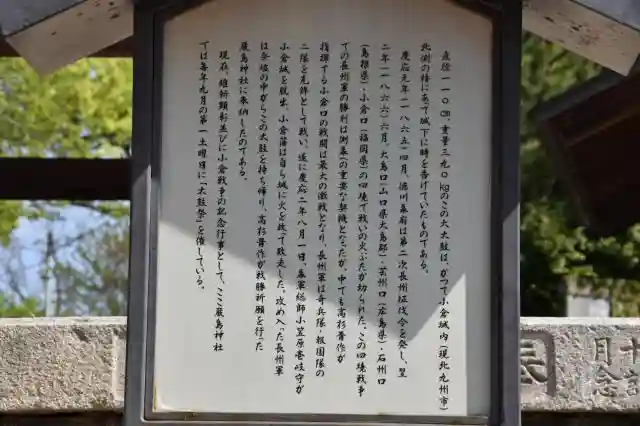 直径一一〇cm、重量三九〇kgのこの大太鼓は、かつて小倉城内(現北九州市)
北側の棒にあって城下に時を告げていたものである。
慶応元年(一八六五)四月、徳川幕府は第二次長州征伐令を発し、翌
二年(一八六六)六月、大島口(山口県大島郡)・芸州口(広島県)・石州口
(島根県)・小倉口(福岡県)の四境で戦いの火ぶたが切られた。この四境戦争
での長州軍の勝利は倒幕への重要な契機となったが、中でも高杉晋作が
指揮する小倉口の戦闘は最大の激戦となり、長州軍は奇兵隊・報国隊の
二隊を先鋒として戦い、遂に慶応二年八月一日、幕軍総師小笠原壱岐守が
小倉城を脱出、小倉藩は自ら城に火を放って敗走した。攻め入った長州軍
は余燼の中からこの太鼓を持ち帰り、高杉晋作が戦勝祈願を行った
厳島神社に奉納したのである。
現在、維新顕彰並びに小倉戦争の記念行事として、ここ厳島神社
では毎年九月の第一土曜日に「太鼓祭」を催している。
月
念